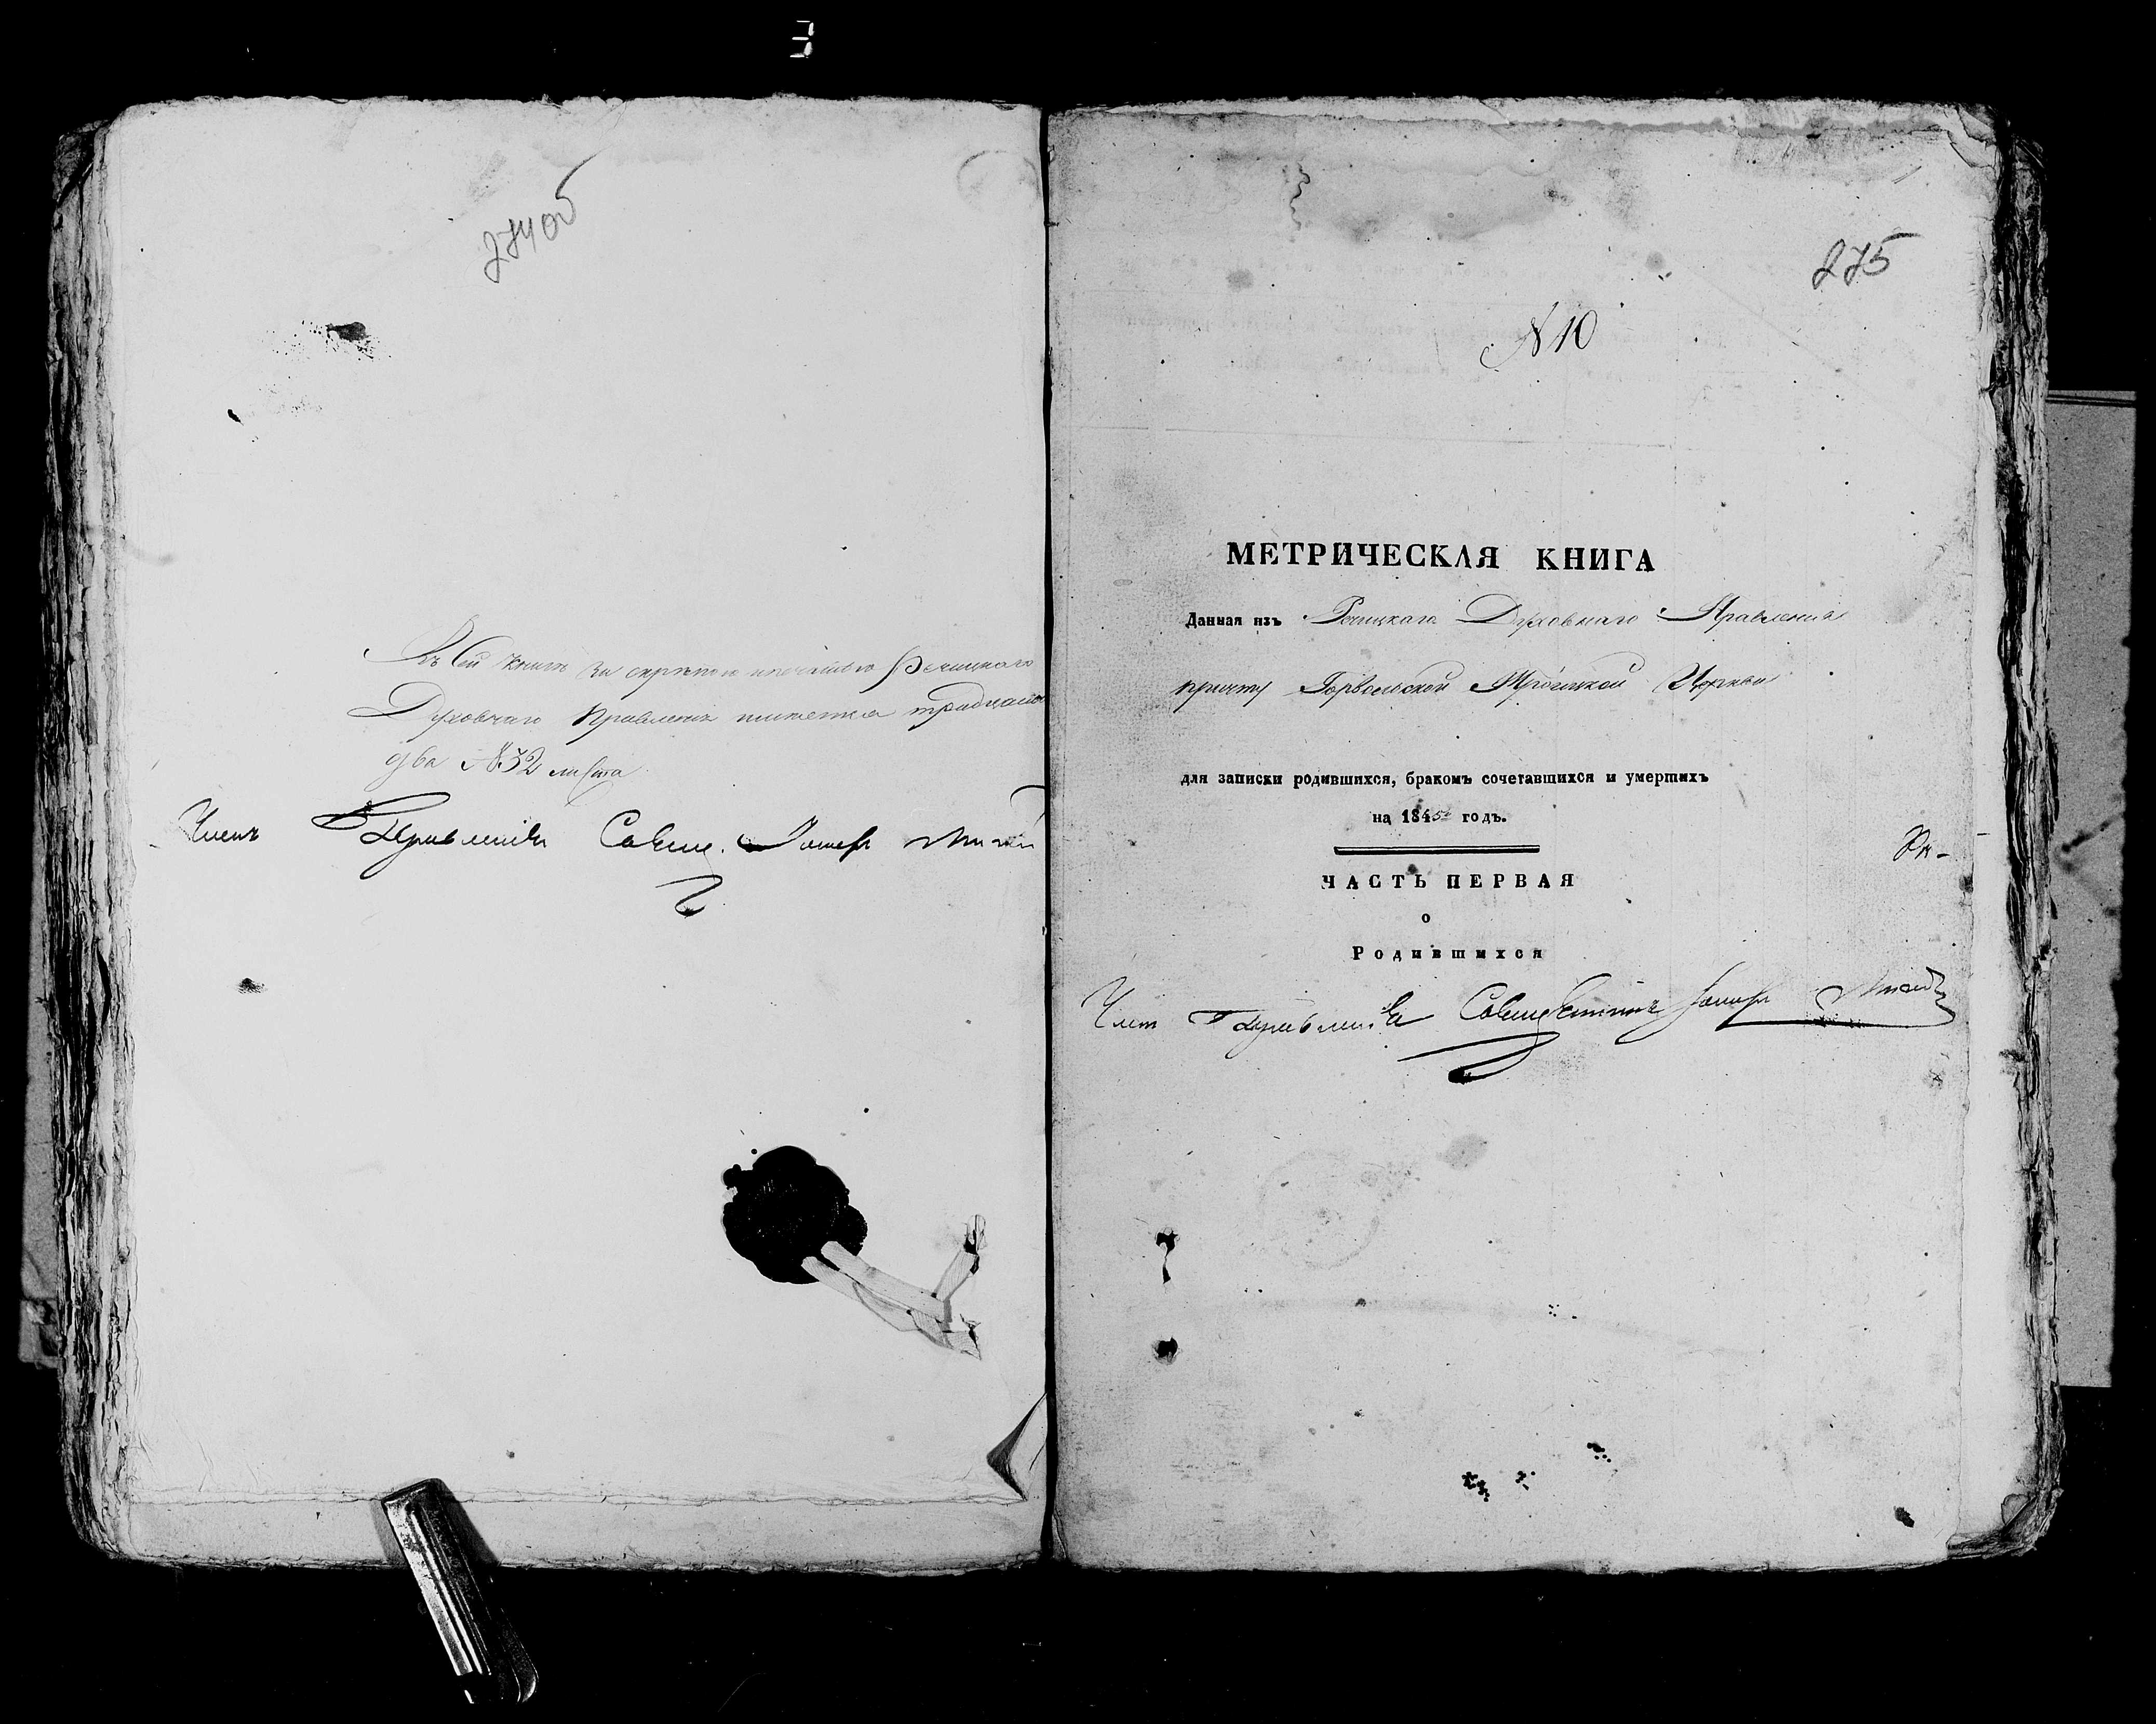 274об
Въ сей книгѣ за скрѣпою и печатью Речицкаго
Духовнаго Правленія имѣется тридцать
два №32 листа
Членъ Правленія Священ.
275
№10
МЕТРИЧЕСКАЯ КНИГА
Данная изъ Речицкаго Духовнаго Правленія
причту Горвольской Троицкой Церкви
для записки родившихся, бракомъ сочетавшихся и умершихъ
на 1845 годъ.
ЧАСТЬ ПЕРВАЯ
о
Родившихся
Член Правленія Священникъ